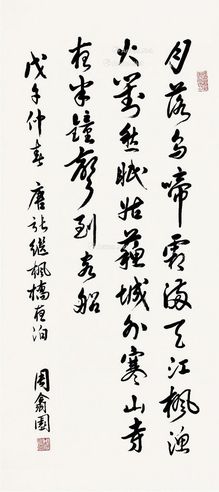 月落乌啼霜满天江枫渔
火对愁眠姑苏城外寒山寺
夜半钟声到客船
戊午仲春 唐张继枫桥夜泊
周翕园